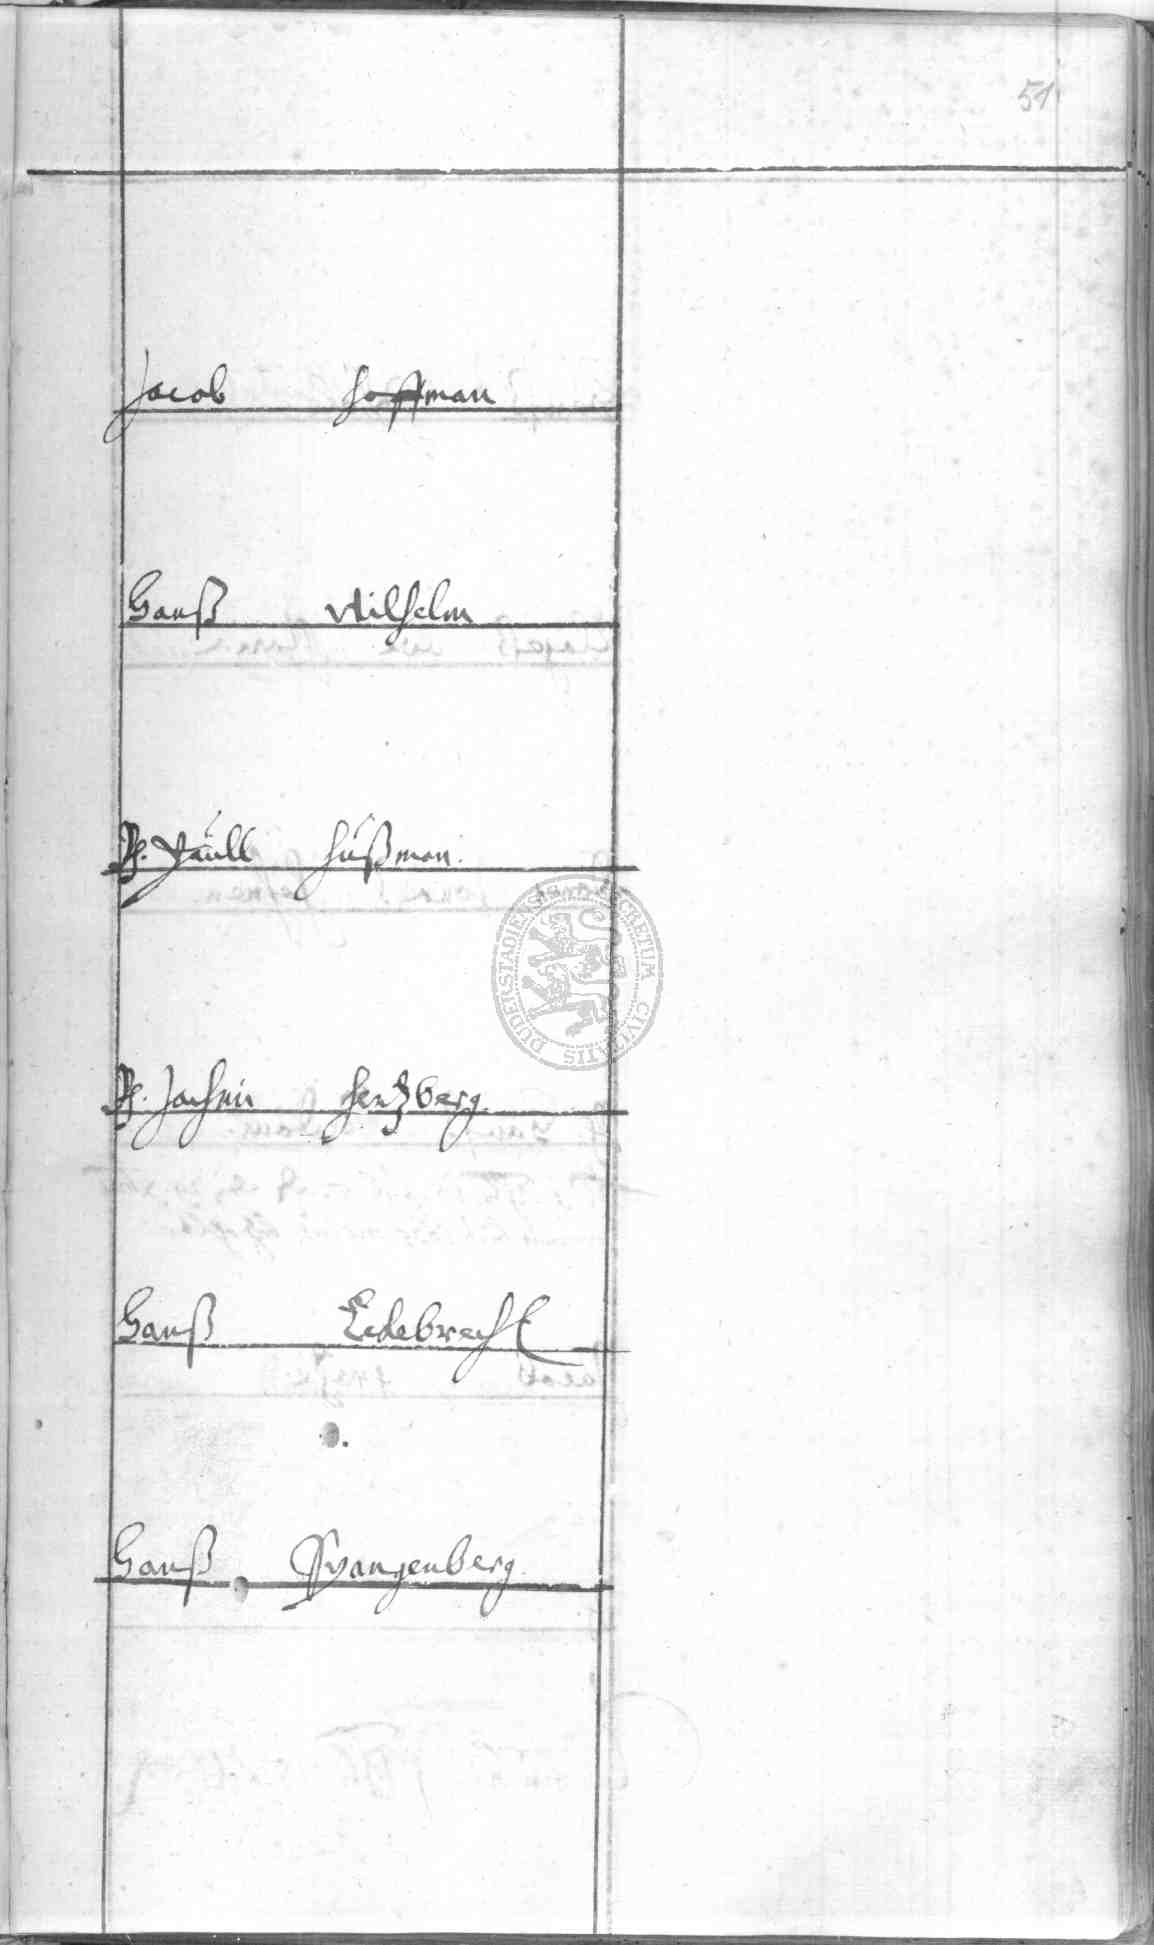 51
Jacob Hoffman
Hanß Wilhelm
Paull Hußman.
Jochim Hertzberg.
Hanß Ledebrecht
Hanß Spangenberg.
SECRETUM CIVITATIS DUDERSTADIENSIS